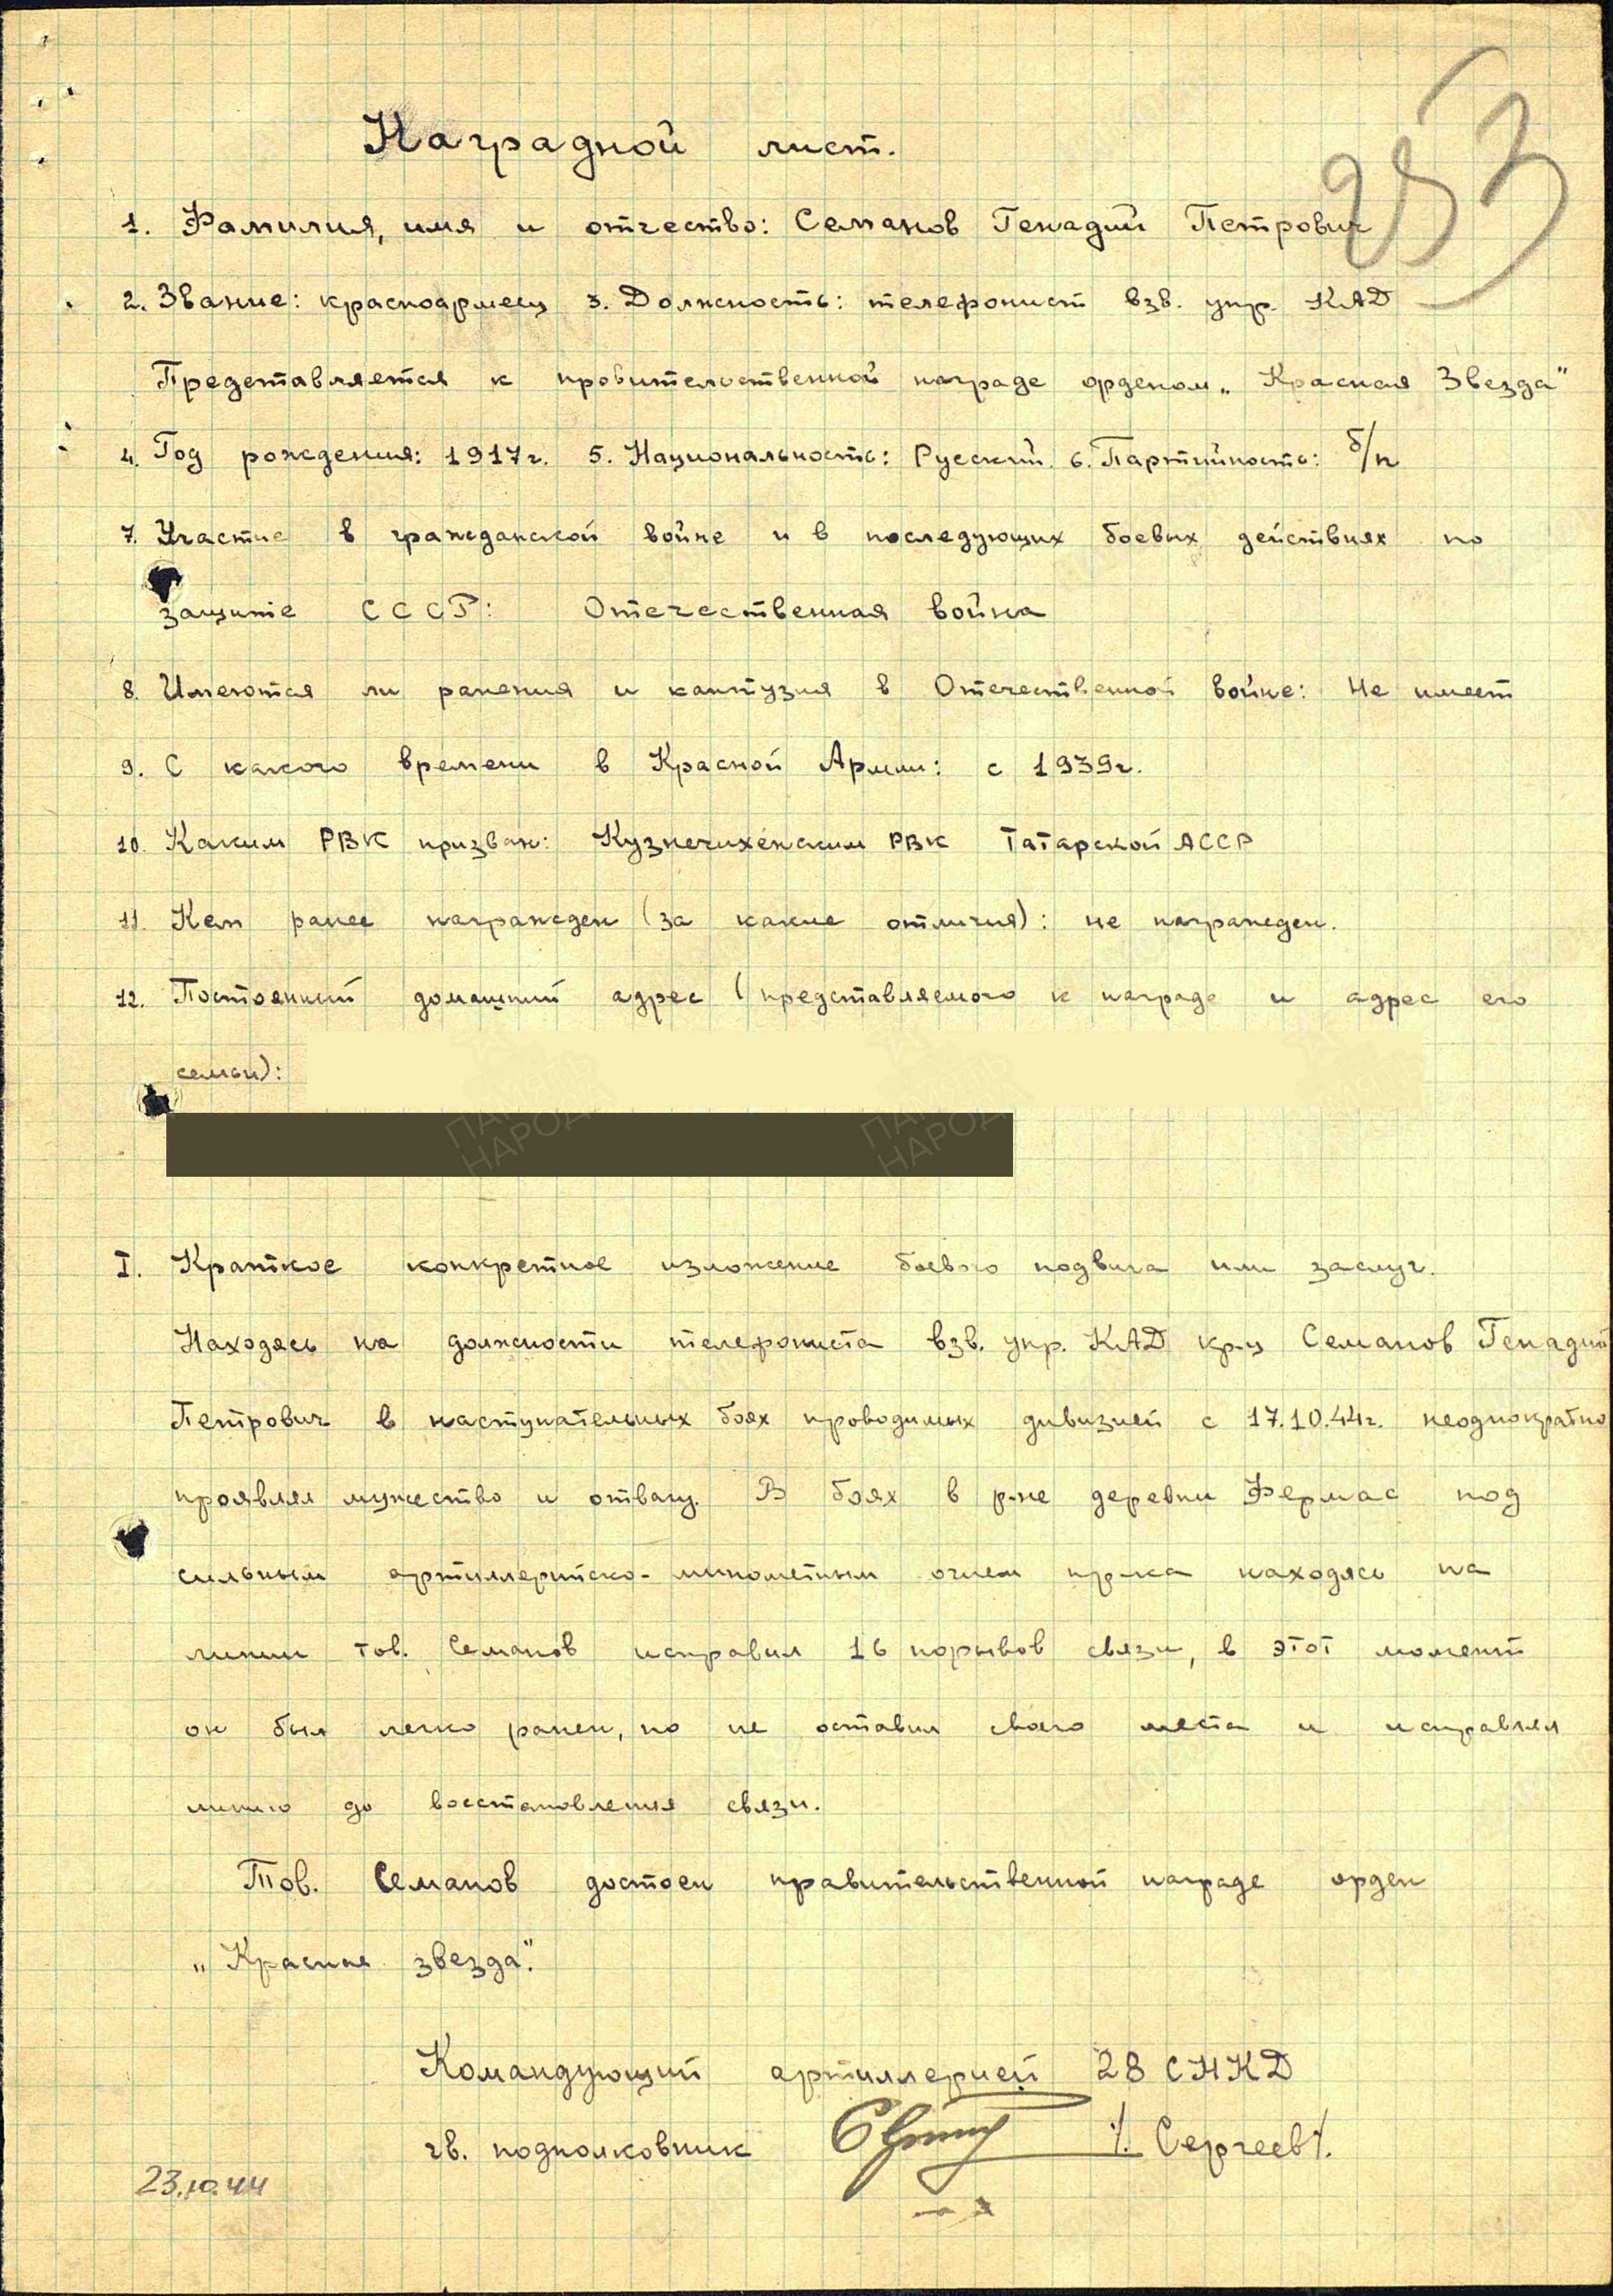 253
Наградной лист.
1. Фамилия, имя и отчество: Семанов Генадий Петрович
2. Звание: красноармеец 3. Должность: телефонист взв. упр. КАД
Представляется к правительственной награде орденом „Красная Звезда"
4. Год рождения: 1917г. 5. Национальность: Русский. 6. Партийность: б/п
7. Участие в гражданской войне и в последующих боевых действиях по
защите СССР: Отечественная война
8. Имеются ли ранения и кантузия в Отечественной войне: Не имеет
9. С какого времени в Красной Армии: с 1939г.
10. Каким РВК призван: Кузнечихенским РВК Татарской АССР
11. Кем ранее награжден (за какие отличия): не награжден.
12. Постоянный домашний адрес (представляемого к награде и адрес его
семьи):
ПАМЯТЬ НАРОДА ПАМЯТЬ НАРОДА
I. Краткое конкретное изложение боевого подвига или заслуг.
Находясь на должности телефониста взв. упр. КАД кр-ц Семанов Генадий
Петрович в наступательных боях проводимых дивизией с 17.10.44г. неоднократно
проявлял мужество и отвагу. В боях в р-не деревни Фермас под
сильным артиллерийско-минометным огнем пр-ка находясь на
линии тов. Семанов исправил 16 порывов связи, в этот момент
он был легко ранен, но не оставил своего места и исправлял
линию до восстановления связи.
Тов. Семанов достоен правительственной награде орден
„Красная звезда".
Командующий артиллерией 28 СНКД
гв. подполковник /. Сергеев/.
23.10.44